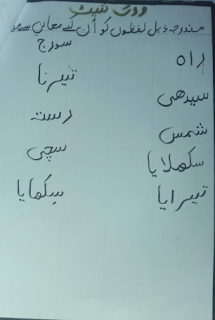 ورک شیٹ
مندرجہ ذیل لفظوں کو ان کے معانی سے
سورج
راہ
تیرنا
سیدھی
رستہ
شمس
سچی
سکھلایا
سکھایا
تیرایا